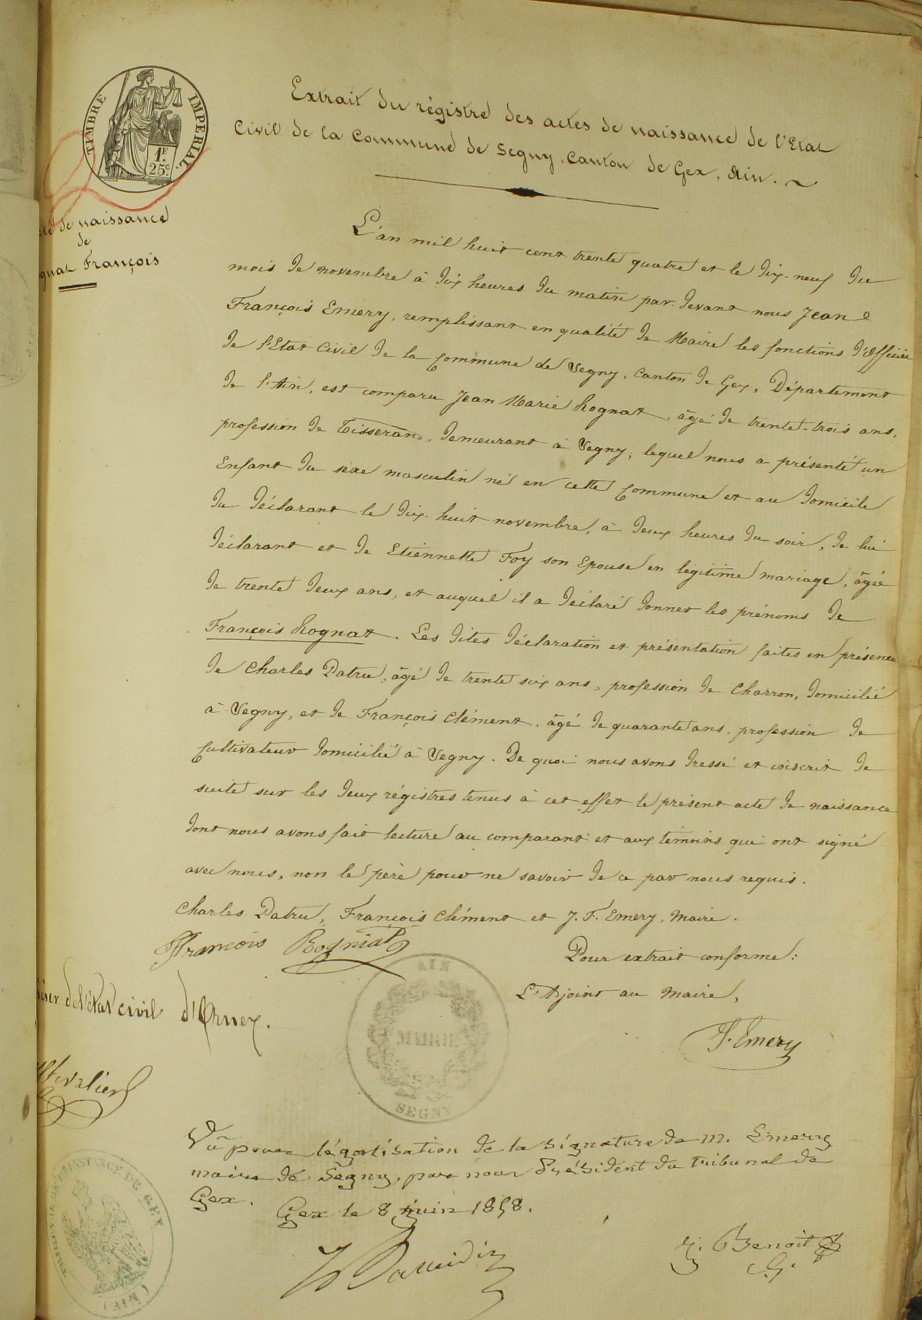 TIMBRE IMPERIAL.
1F
25c
Extrait du régistre des actes de naissance de l'Etat
Civil de la Commune de Segny, Canton de Gex, Ain.
de naissance
de
François
L'an mil huit cent trente quatre et le dix-neuf du
mois de novembre à dix heures du matin par devant nous Jean
François Emery, remplissant en qualité de Maire les fonctions d'officier
de l'Etat Civil de la Commune de Segny, Canton de Gex, Département
de l'Ain, est comparu Jean Marie Rognat, âgé de trente-trois ans,
profession de Tisserand, demeurant à Segny, lequel nous a présenté un
Enfant du sexe masculin né en cette Commune et au domicile
du déclarant le dix-huit novembre, à deux heures du soir, de lui
déclarant et de Etiennette Foy son Epouse en légitime mariage, âgée
de trente deux ans, et auquel il a déclaré donner les prénoms de
François Rognat. Les dites déclaration et présentation faites en présence
de Charles Datru, âgé de trente six ans, profession de Charron, domicilié
à Segny, et de François Clément, âgé de quarante ans, profession de
Cultivateur domicilié à Segny. De quoi nous avons dressé et inscrit de
suite sur les deux régistres tenus à cet effet le présent acte de naissance
dont nous avons fait lecture au comparant et aux témoins qui ont signé
avec nous, non le père pour ne savoir de ce par nous requis.
Charles Datru, François Clément et J. F. Emery, Maire.
François Rogniat
Pour extrait conforme:
L'Adjoint au Maire,
de l'état civil d'Ornex.
F. Emery
AIN
MAIRIE
SEGNY
Vu pour légalisation de la signature de M. Emery
maire de Segny, par nous Président du tribunal de
Gex.
Gex le 8 juin 1858.
Benoit